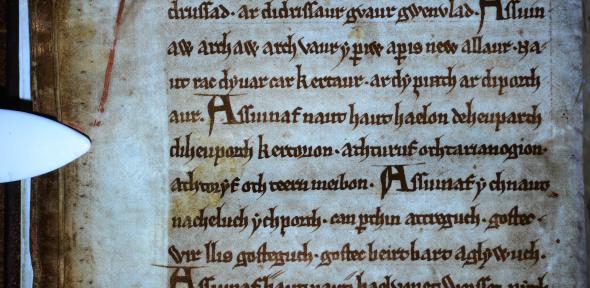 drussad. ar didrissaur gvaur gwenvlad. Assuin
aw archaw arch vaur y periw aperis new allaur. na
ut rac dyuar car kertaur. ar dy pirth ar diporth
aur. Assuinaf naut haut haelon deheuparth
diheuporth kertorion. ach turuf och tarianogion.
ach toryf och teern meibon. Assuinaf ych naut
nacheluch ych porth. can perthin attreguch. gostec
wir llis gosteguch. gostec beirt bart aglywuch.